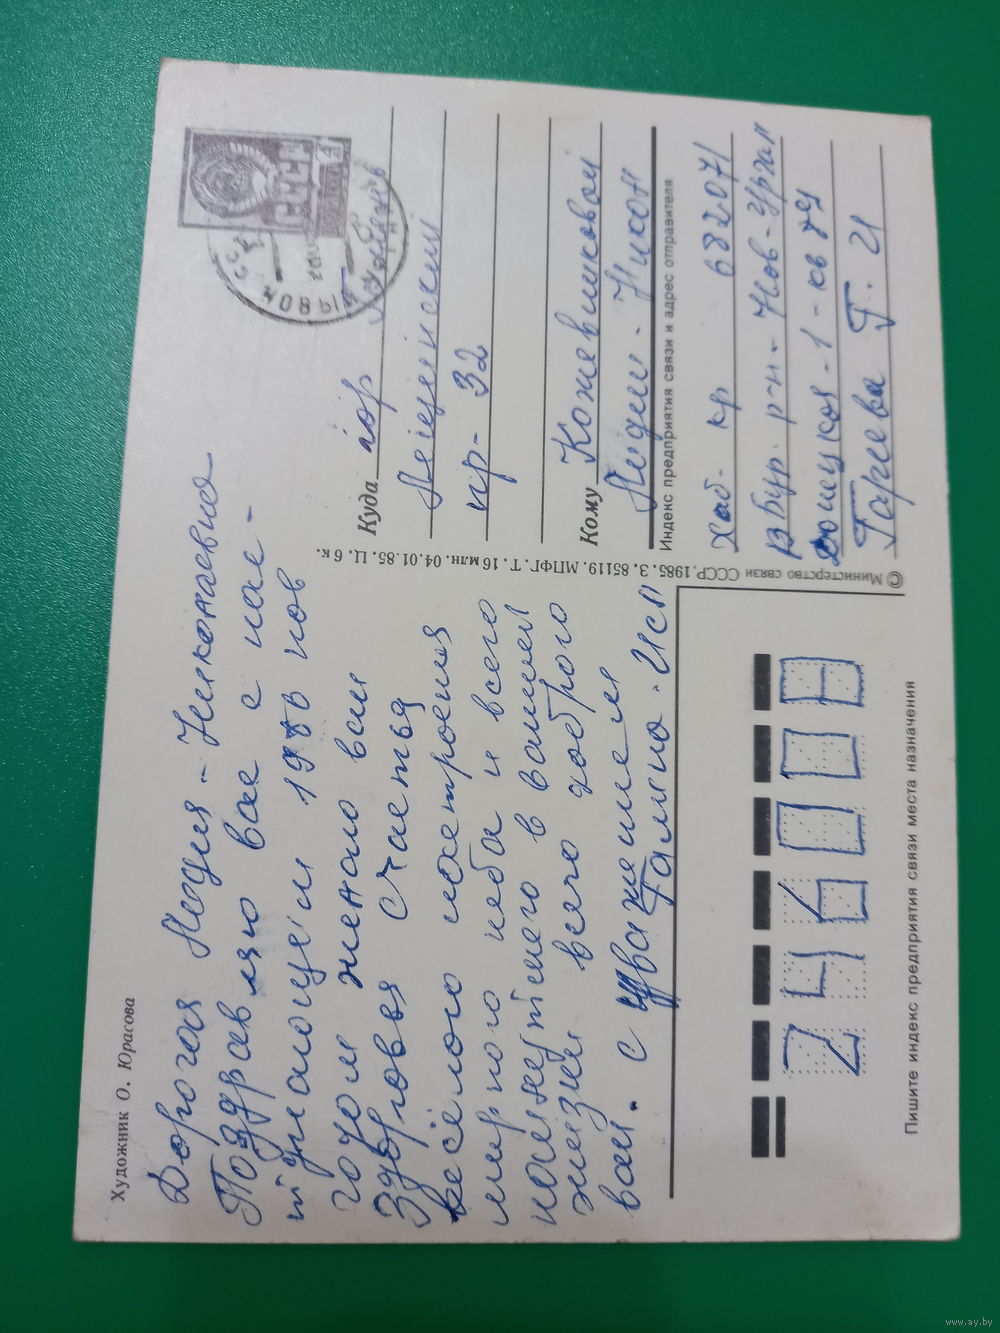 Художник О. Юрасова
Дорогая Лидия - Николаевна
Поздравляю вас с нас-
тупающем 1986 нов
годом желаю вам
Здоровья счастья
весёлого настроения
мирного неба и всего
наилутшего в вашей
жизни всего доброго
вам. с уважением
Галина.
Куда гор Гомель
Лещинский
пр- 32
Кому Кожевниковой
Лидии - Никол
Индекс предприятия связи и адрес отправителя
Хаб. кр 682071
В Бур. р-н - Нов-Ургал
Донецкая - 1 - кв 79
Гареева Г. И
© Министерство связи СССР, 1985. З. 85119. МПФГ. Т. 16 млн. 04.01.85. Ц. 6 к.
246008
Пишите индекс предприятия связи места назначения
www.ay.by